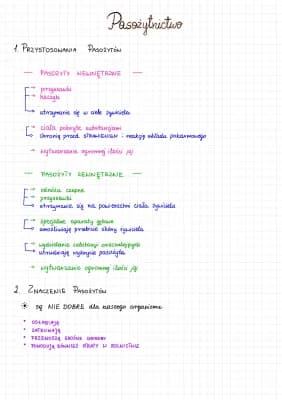 Pasożytnictwo
1. PRZYSTOSOWANIA PASOŻYTÓW
— PASOŻYTY WEWNĘTRZNE —
przyssawki
haczyki
utrzymanie się w ciele żywiciela
ciała pokryte substancjami
chronią przed STRAWIENIEM i reakcją układu pokarmowego
→ wytwarzanie ogromnej ilości jaj
— PASOŻYTY ZEWNĘTRZNE —
odnóża czepne
przyssawki
utrzymywanie się na powierzchni ciała żywiciela
specjalne aparaty gębowe
umożliwiają przebicie skóry żywiciela
wydzielanie substancji znieczulających
utrudniają wykrycie pasożyta
→ wytwarzanie ogromnej ilości jaj
2. ZNACZENIE PASOŻYTÓW
są NIE DOBRE dla naszego organizmu
• OSŁABIAJĄ
• ZATRUWAJĄ
• PRZENOSZĄ GROŹNE CHOROBY
• POWODUJĄ RÓWNIEŻ STRATY W ROLNICTWIE